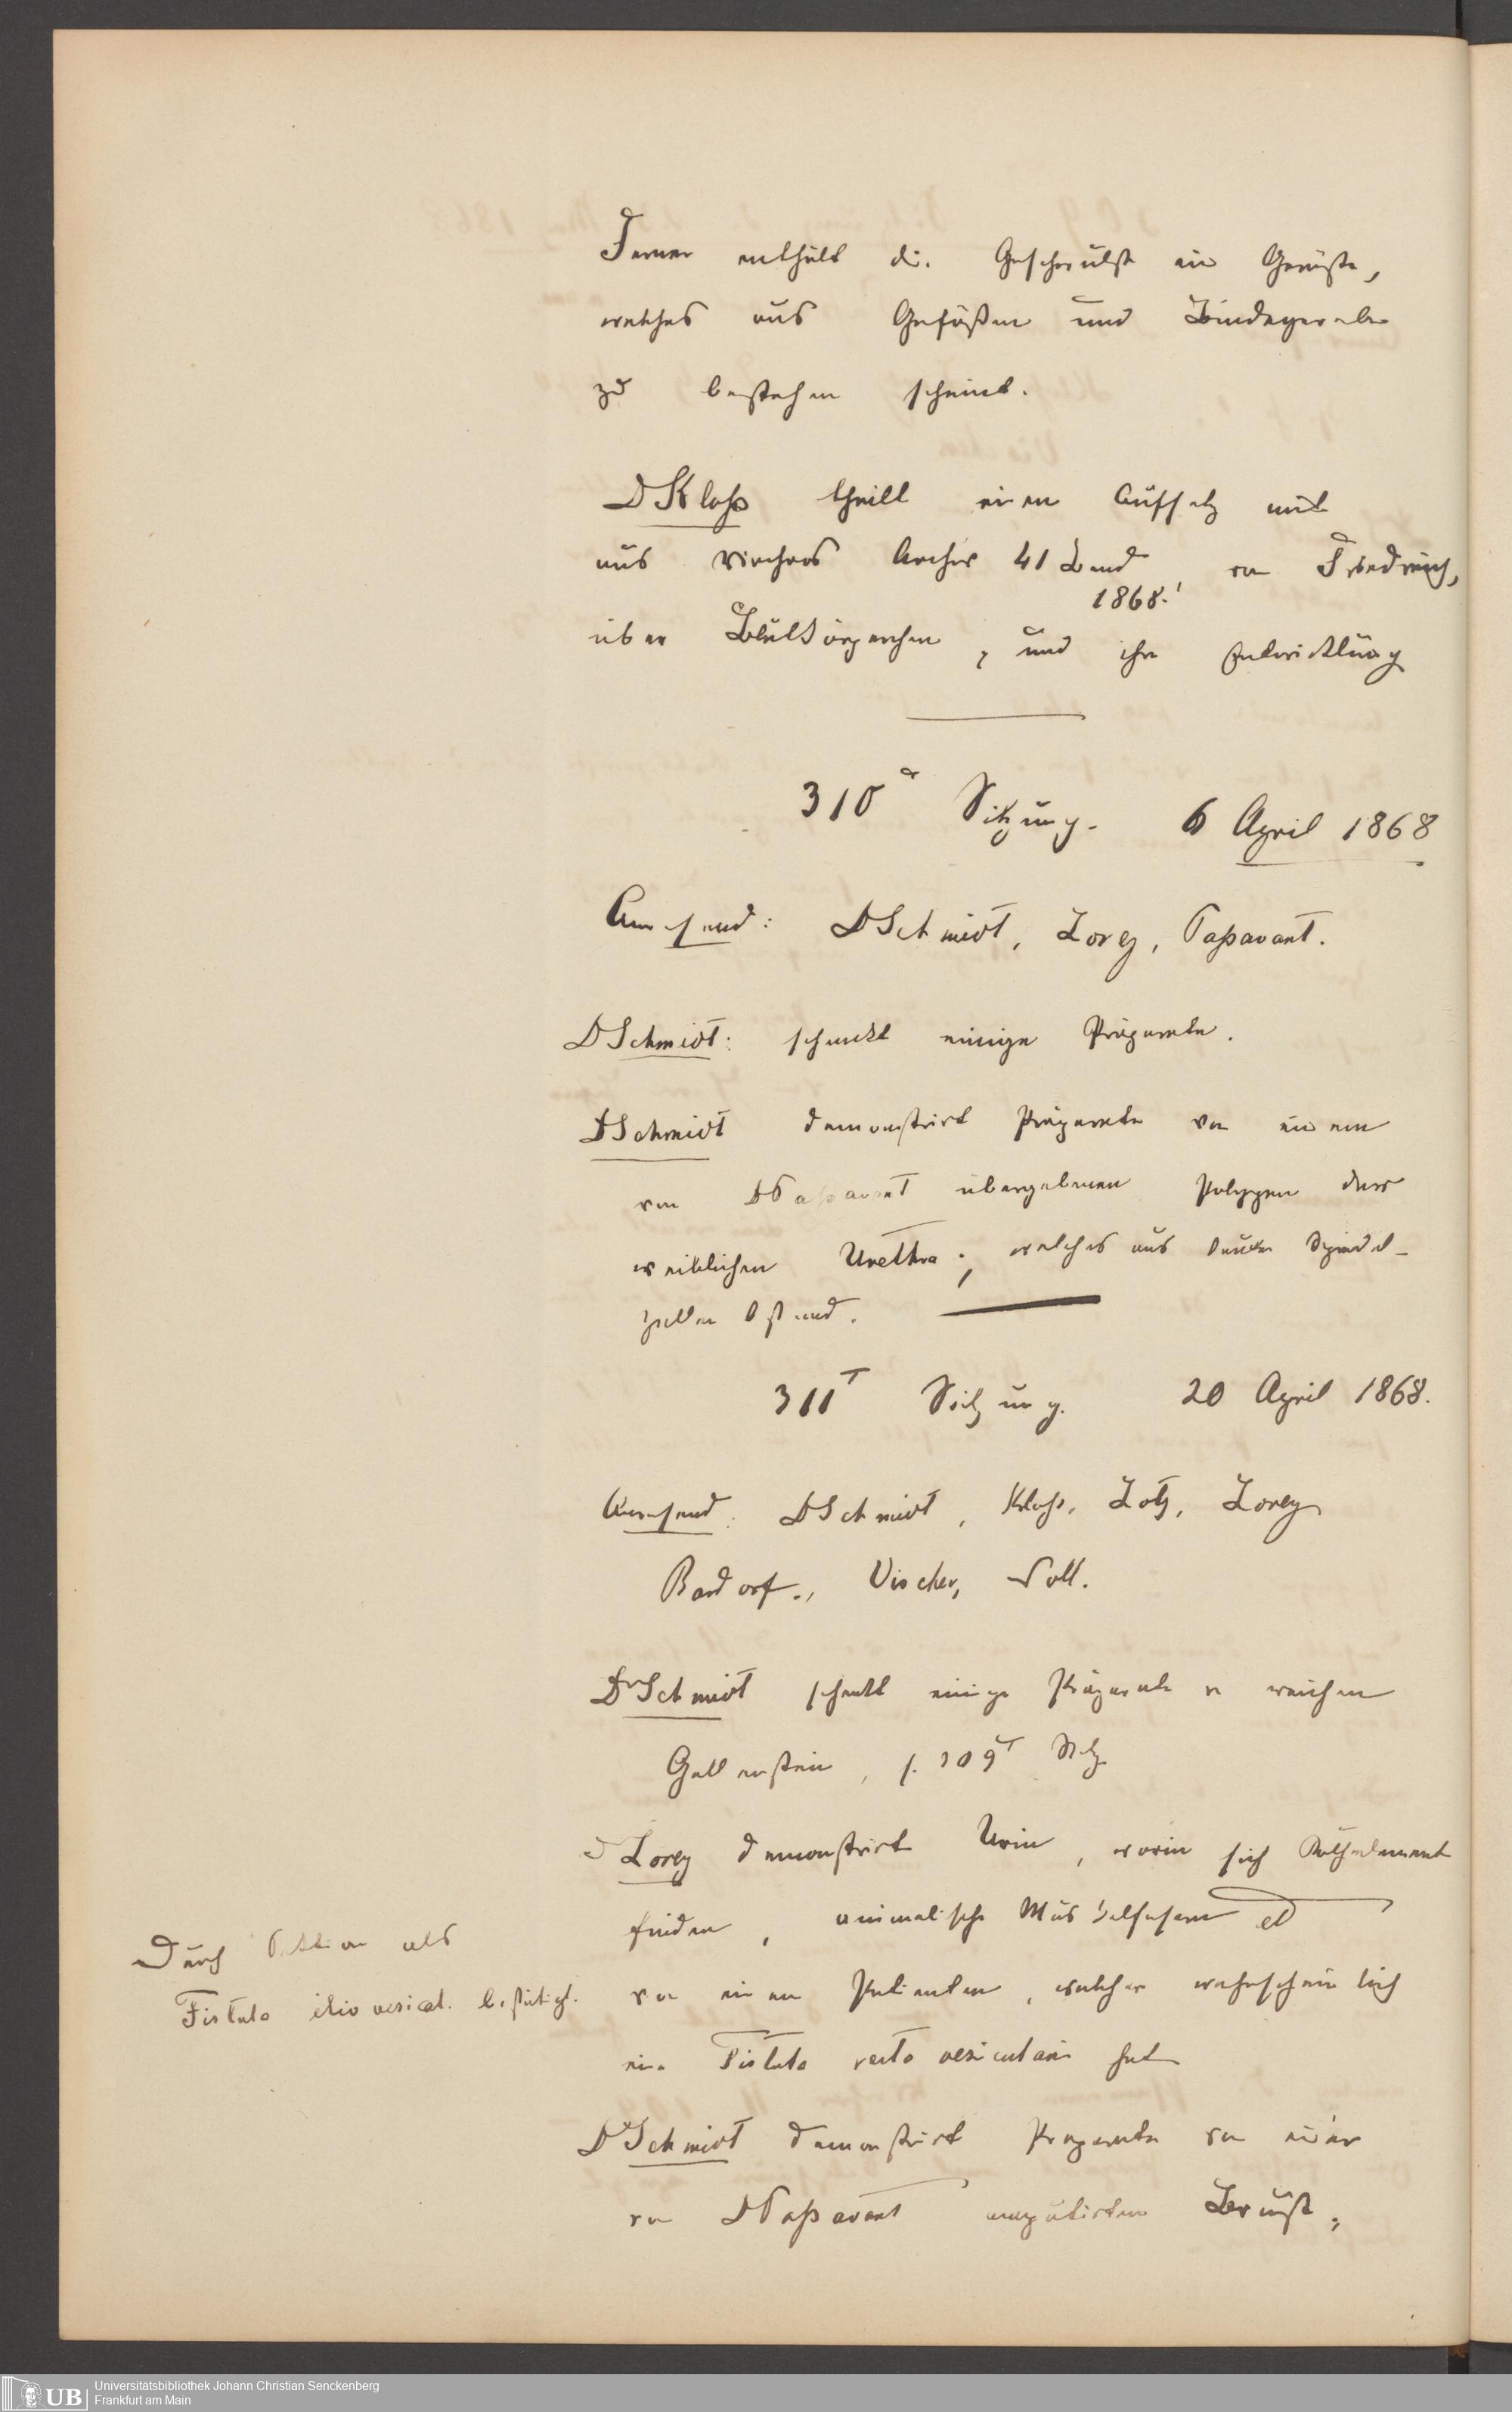 Ferner enthält die Geschwulst ein Gerüste,
welches aus Gefäßen und Bindegewebe
zu bestehen scheint.
D Kloß theilt einen Aufsatz mit
aus Virchows Archiv 41 Band von Friedreich,
1868.
über Blutkörperchen, und ihre Entwicklung
310te Sitzung. 6 April 1868
Anwesend: D Schmidt, Lorey, Paßavant.
D Schmidt: schenkt einige Präparate.
D Schmidt demonstrirt Präparate von einem
von D Paßavant übergebenen Polypen der
weiblichen Urethra; welches aus Spindel-
zellen bestand.
311T Sitzung. 20 April 1868.
Anwesend: D Schmidt, Kloß, Lotz, Lorey
Bardorf., Vischer, Noll.
Dr Schmidt schenkt einige Präparate v weichem
Gallenstein, s. 309T Sitz
D Lorey demonstrirt Urin, worin sich Kothelemente
finden, animalische Muskelfasern et
von einem Patienten, welcher wahrscheinlich
eine Fistula recto vesicularis hat
Durch Sektion als
Fistula ilio vesical. bestätigt.
Dr Schmidt demonstrirt Präparate von einer
von D Paßavant amputirten Brust;
Universitätsbibliothek Johann Christian Senckenberg
Frankfurt am Main
UB